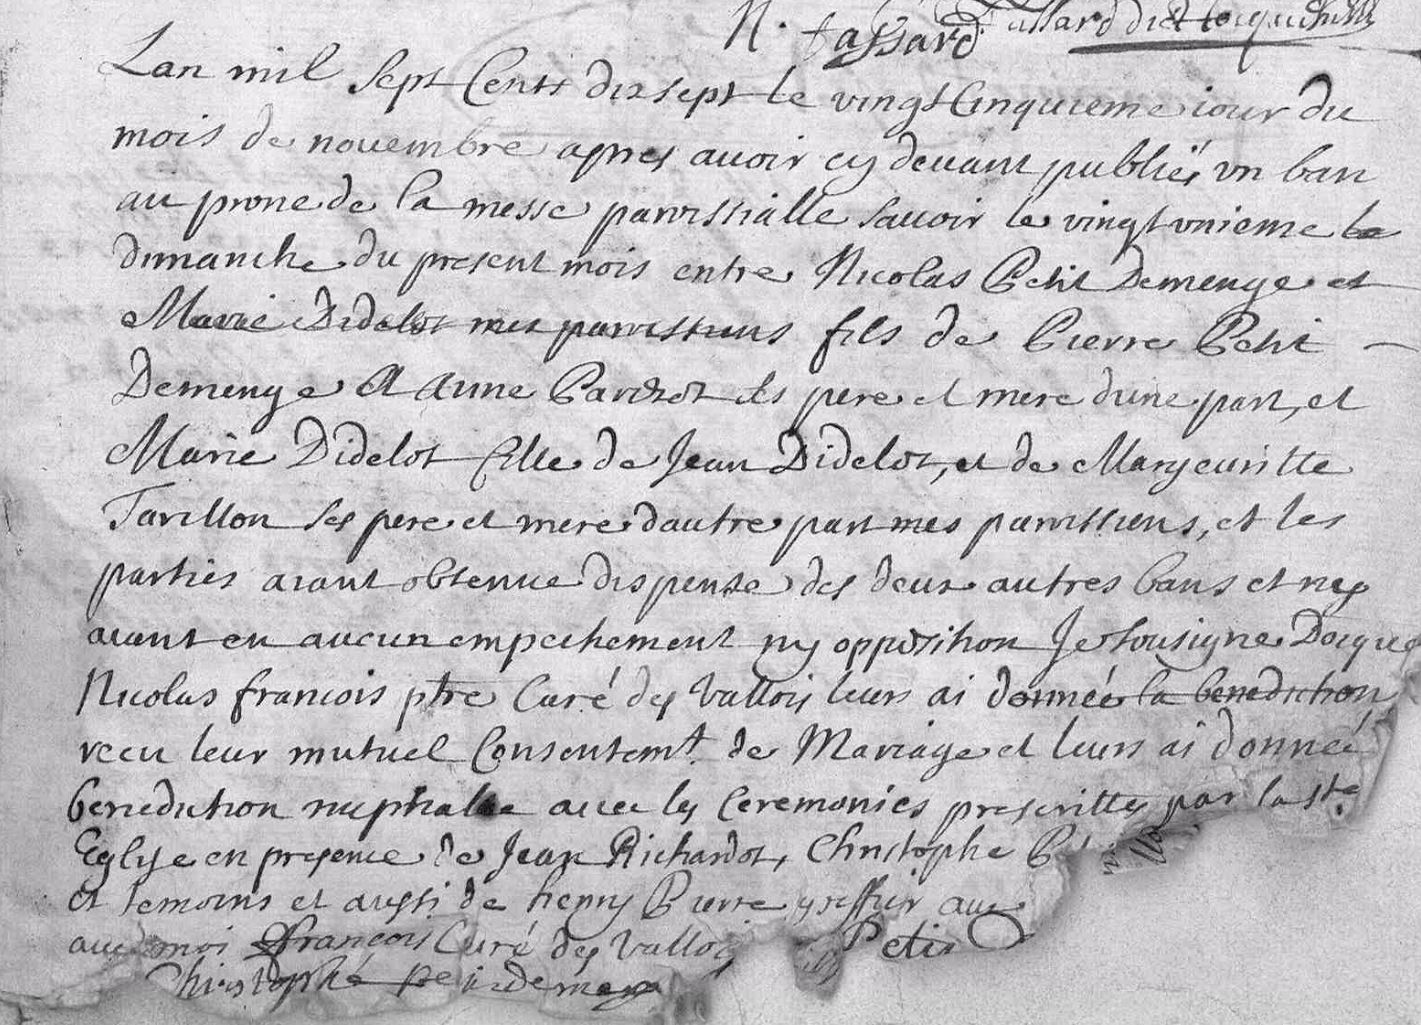 N. tassard
Lan mil sept Cents dixsept le vingt Cinquieme iour du
mois de nouembre apres auoir cy deuant publiés vn ban
au prone de la messe parroissialle sauoir le vingt vnieme
dimanche du present mois entre Nicolas Petit Demenge et
Marie Didelot mes parroissiens fils de Pierre Petit
Demenge et Anne ses pere et mere dune part, et
Marie Didelot fille de Jean Didelot, et de Margeuritte
Tarillon ses pere et mere dautre part mes parroissiens, et les
parties aiant obtenue dispense des deux autres bans et ny
aiant eu aucun empechement ny opposition Je sousigne
Nicolas francois ptre Curé des Vallois leurs ai donnée la benediction
recu leur mutuel Consentemt de Mariage et leurs ai donneé
benediction nuptialle auec les ceremonies prescrittes par la ste
Eglise en presence de Jean Richardot, Christophe
et temoins et aussi de henry Pierre
auec moi francois Curé des Vallo Petit
Christophe